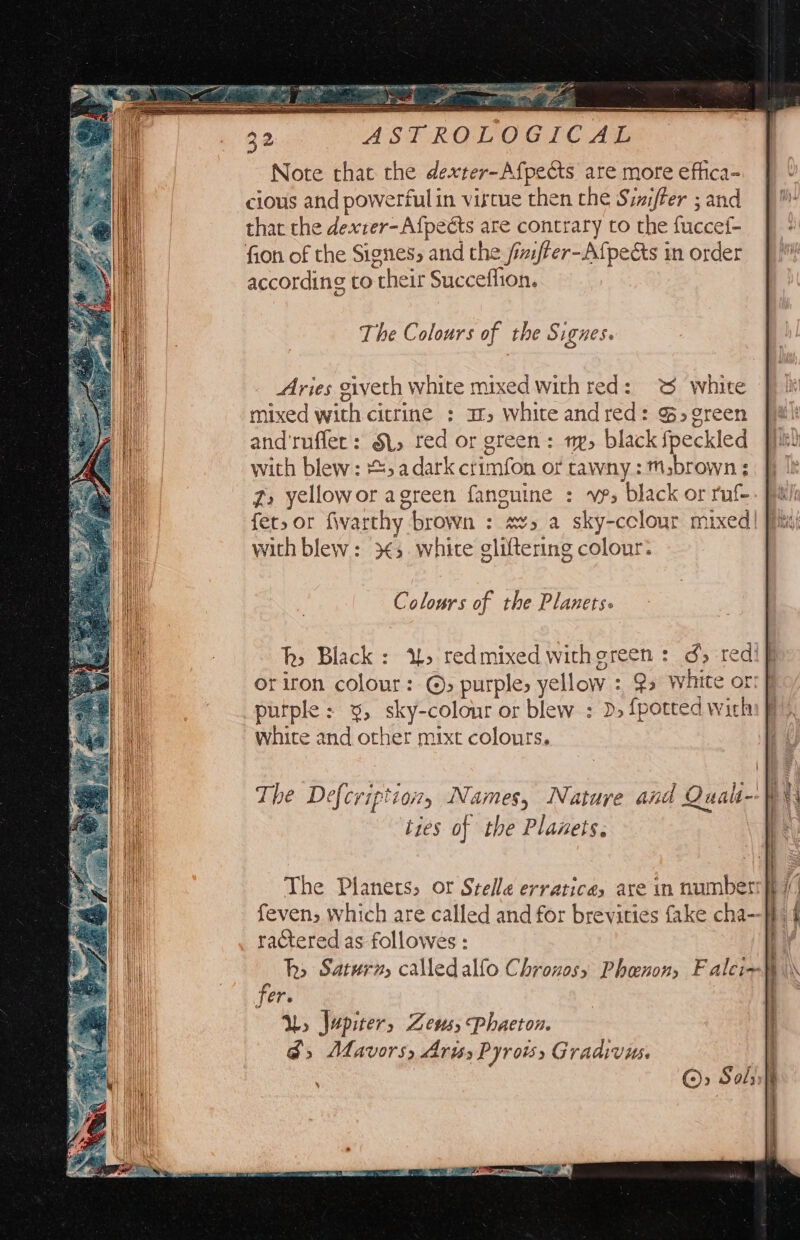 32 ASTROLOGICAL
Note that the dexter-Aſpects are more effica-
cious and powerful in virtue then the Siniſter ; and
that the dexter-Aſpects are contrary to the ſucceſ-
ſion of the Signes, and the ſiniſter-Aſpects in order
according to their Succeſſion.
The Colours of the Signes.
Aries giveth white mixed with red : ♉ white
mixed with citrine : ♊, white and red : ♋, green
and ruſſet : ♌, red or green : ♍, black ſpeckled
with blew : ♎, a dark crimſon or tawny : ♏, brown :
♐, yellow or a green ſanguine : ♑, black or ruſ-
ſet, or ſwarthy brown : ♒, a sky-colour mixed
with blew : ♓, white gliſtering colour.
Colours of the Planets.
♄, Black : ♃, red mixed with green : ♂, red
or iron colour : ☉, purple, yellow : ♀, white or
purple : ☿, sky-colour or blew : ☽, ſpotted with
white and other mixt colours.
The Deſcription, Names, Nature and Quali-
ties of the Planets.
The Planets, or Stellæ erraticæ, are in number
ſeven, which are called and for brevities ſake cha-
ractered as followes :
♄, Saturn, called alſo Chronos, Phœnon, Falci-
fer.
♃, Jupiter, Zeus, Phaeton.
♂, Mavors, Aris, Pyrois, Gradivus.
☉, Sol,